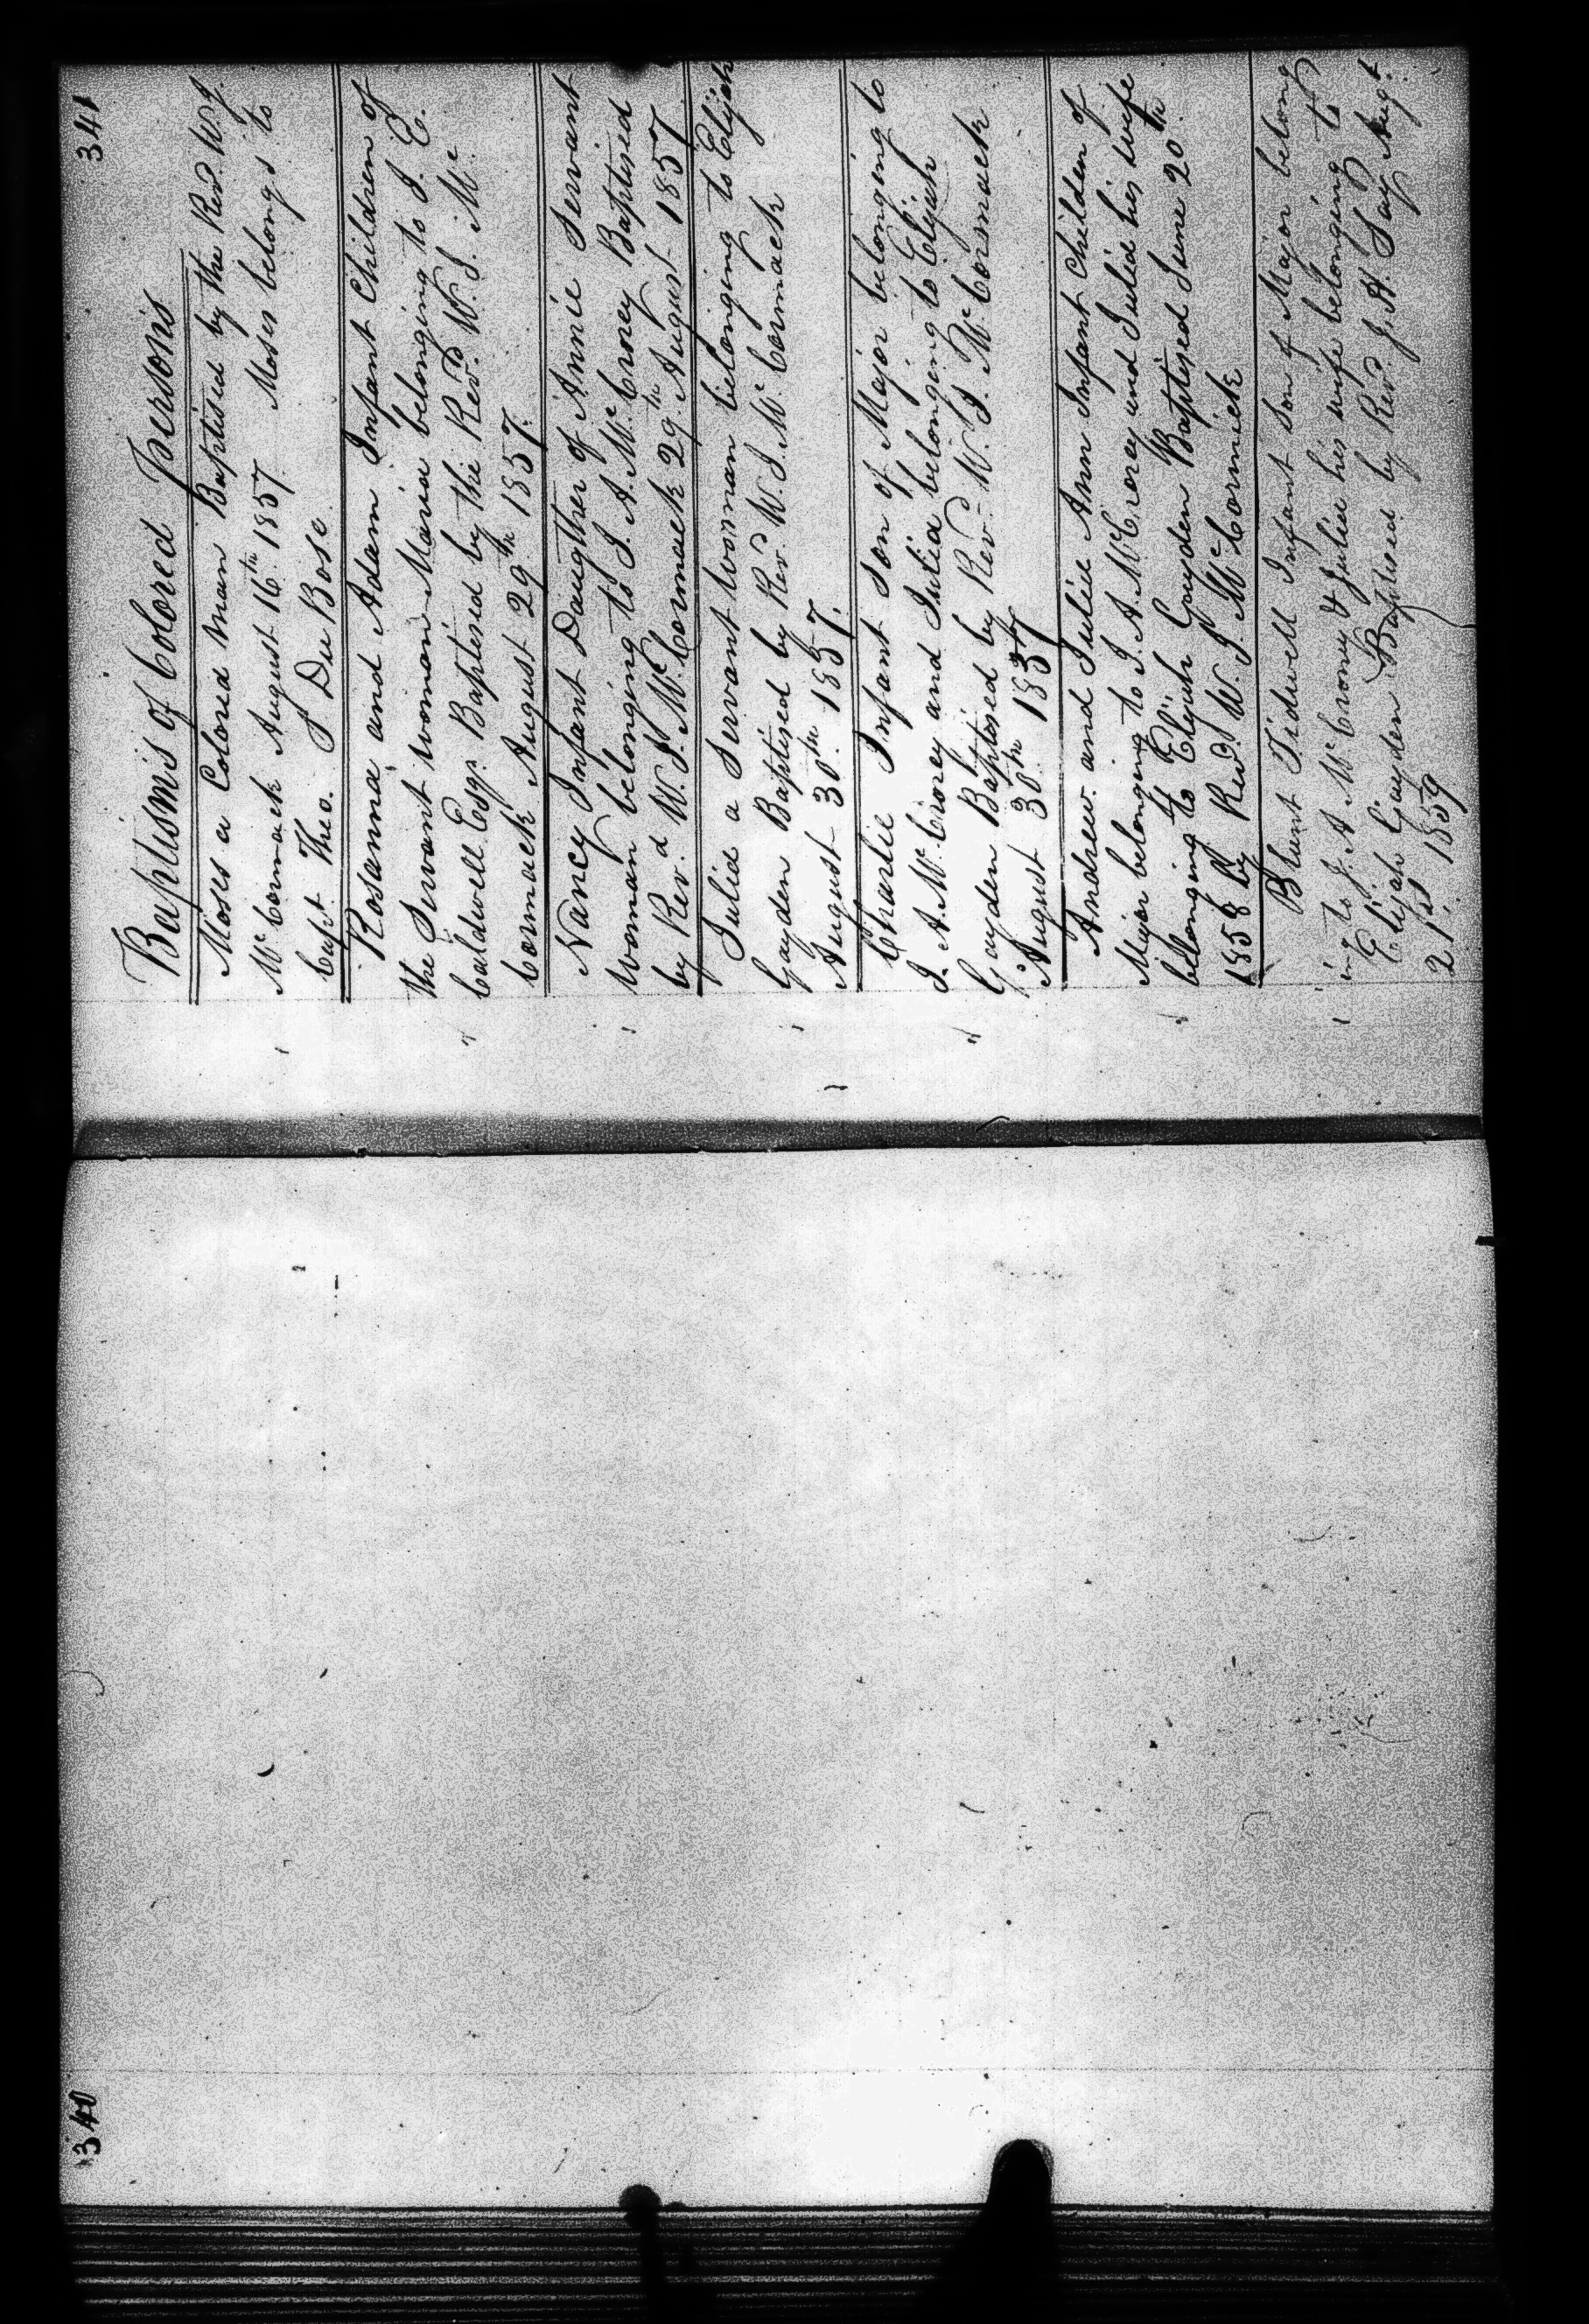 341
Baptisms of Colored persons
Moses a Colored man Baptised by the Revd. W. J.
McCormack August 16th. 1857 Moses belongs to
Capt. Theo. S DuBose.
Rosanna and Adam Infant Children of
the Servant woman Maria belonging to J. E.
Caldwell Esqr. Baptised by the Revd. W. J. Mc
Cormack August 29th. 1857.
Nancy Infant Daugther of Annie Servant
Woman belonging to J. A. McCrorey Baptised
by Revd. W. J. McCormack 29th. August 1857
Julia a Servant Woman belonging to Elijah
Gayden Baptised by Revd. W. J. McCormack
August 30th. 1857.
Charlie Infant Son of Major belonging to
J. A. McCrorey and Julia belonging to Elijah
Gayden Baptised by Revd. W. J. McCormack
August 30th 1857
Andrew and Juliie Ann Infant Childen of
Major belonging to J. A. McCrorey and Julia his wife
belonging to Elijah Gayden Baptised June 20th.
1858 by Revd. W. J. McCormick
Blunt Tidwell Infant Son of Major belong
ing to J. A McCrorey & Julia his wife belonging to
Elijah Gayden Baptised by Revd. J. H. Saye Augt.
21st 1859
340